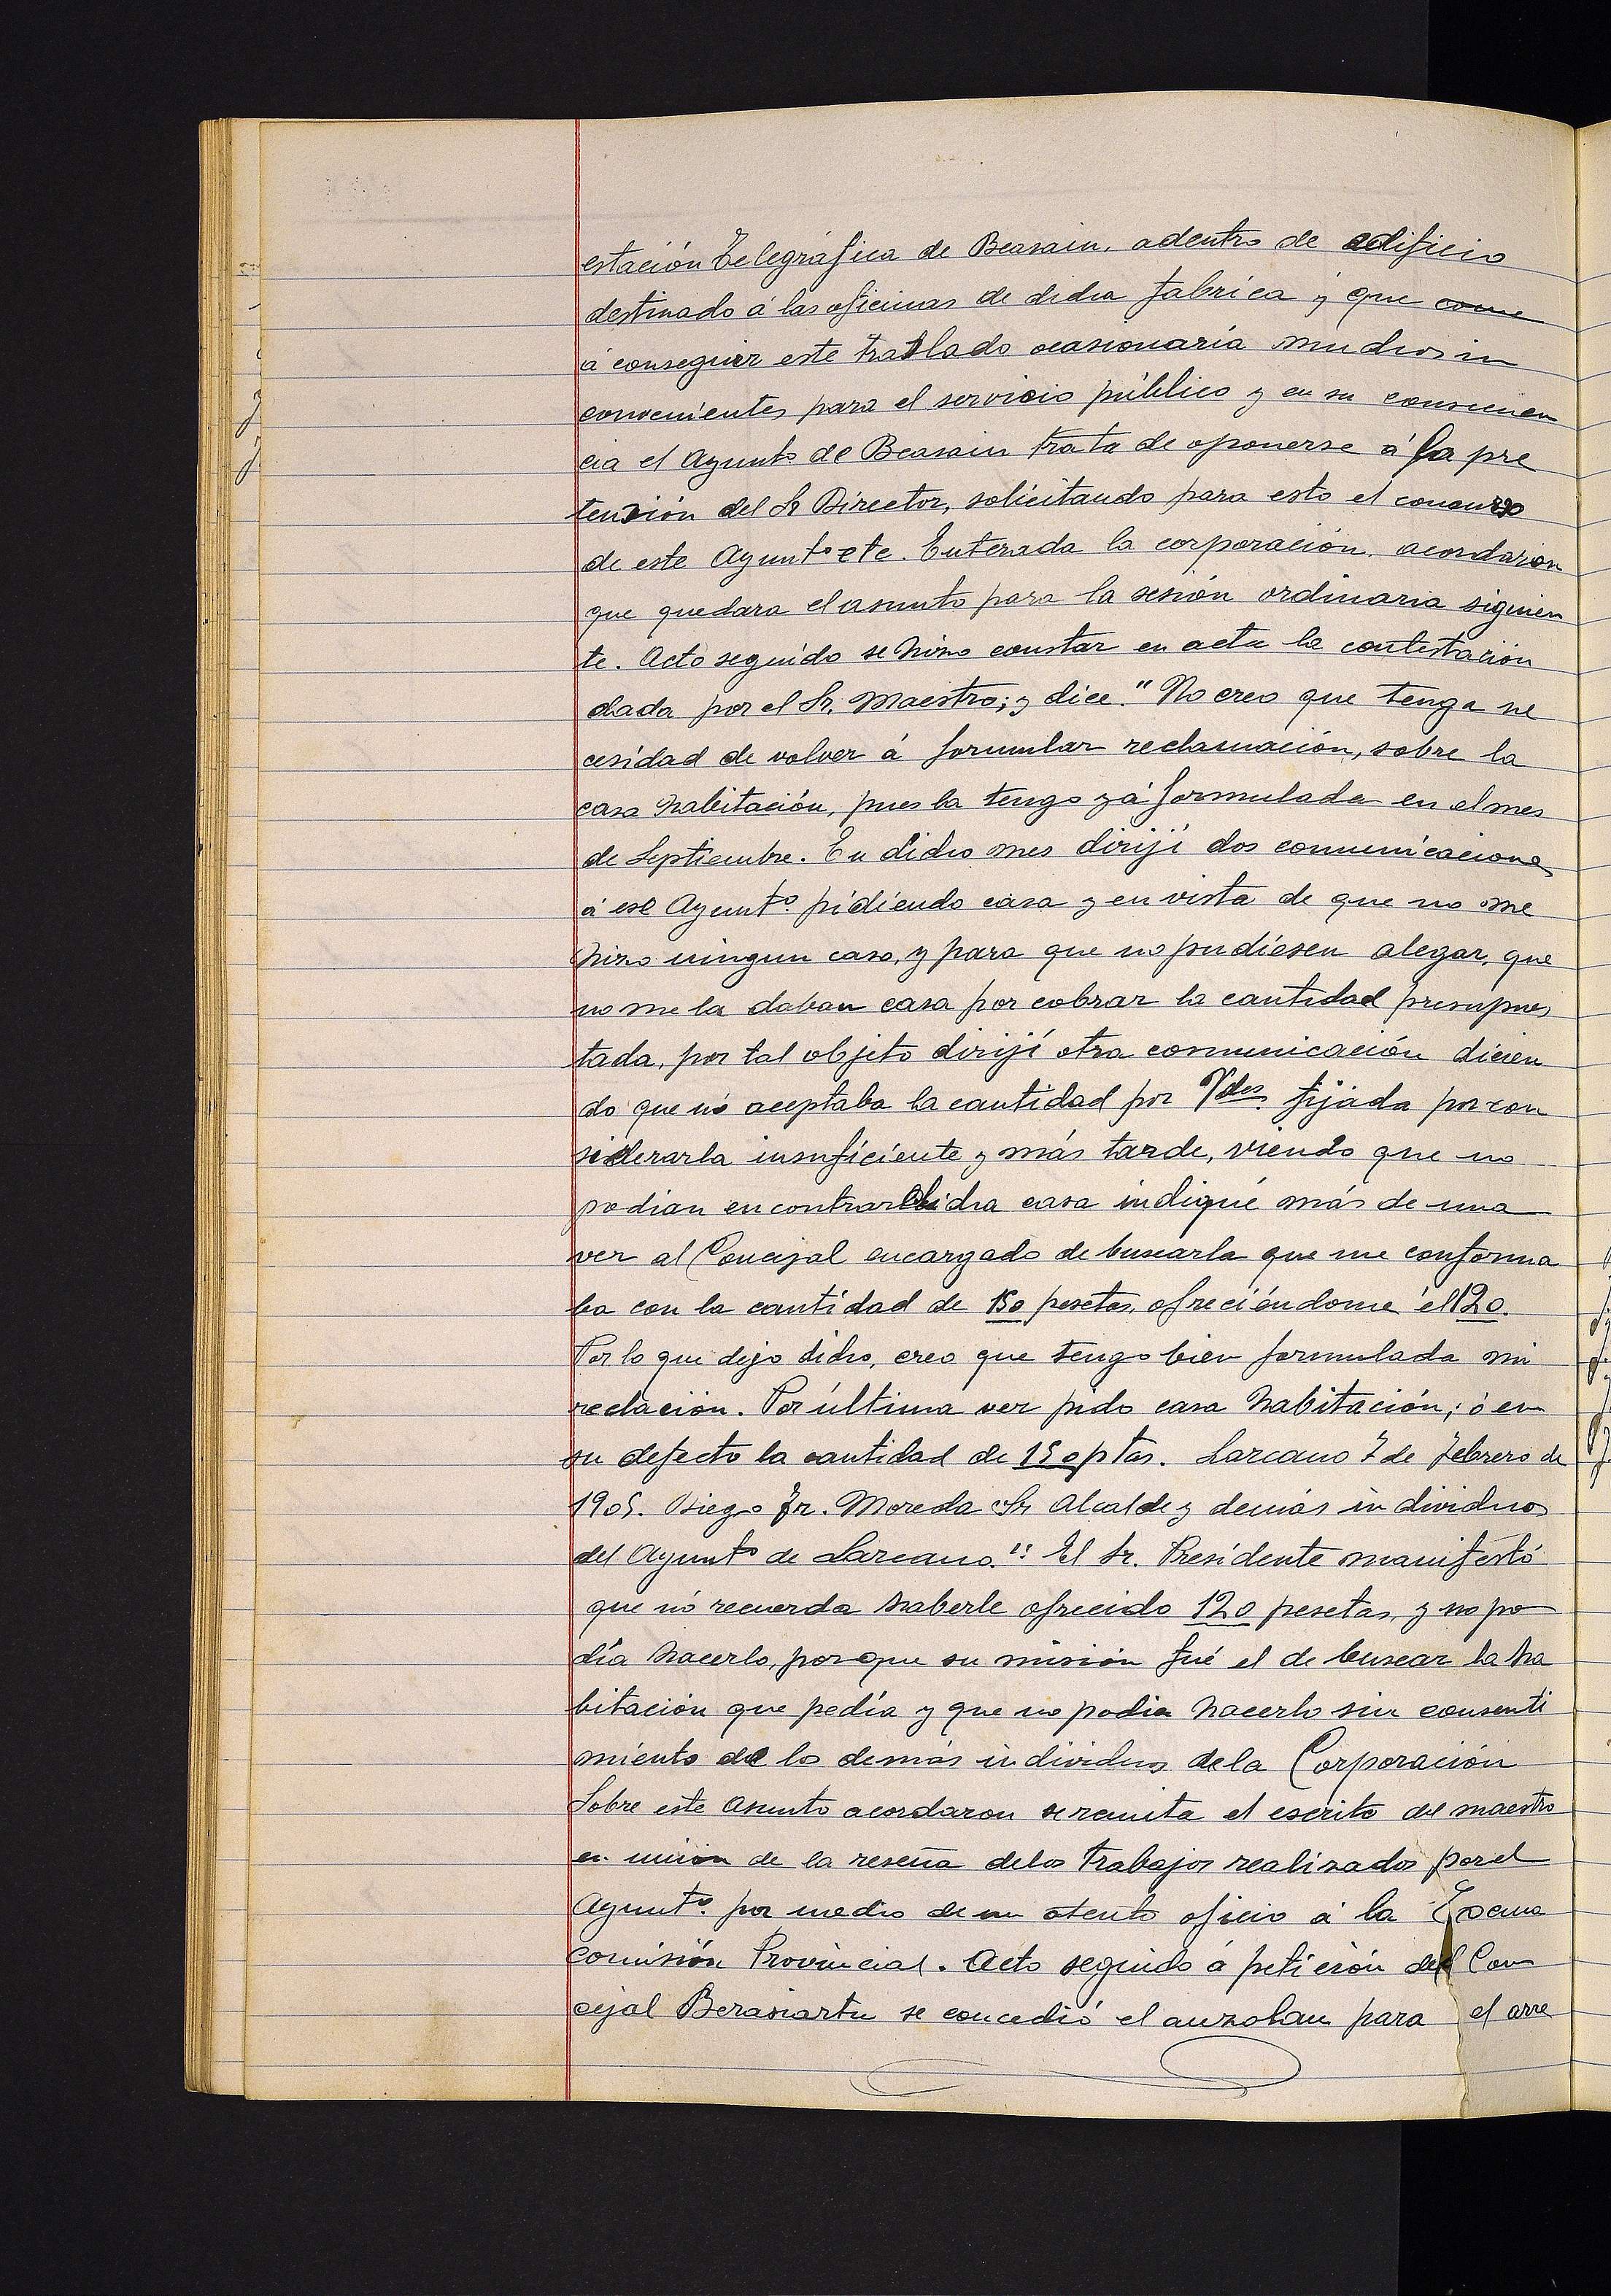 estación Telegráfica de Beasain, adentro de edificio
destinado á las oficinas de dicha fabrica y que come
á conseguir este traslado ocasionaría muchos in
convenientes para el servicio público y en su consecuen
cia el Ayunto de Beasain trata de oponerse á la pre
tensión del Sr Director, solicitando para esto el concurso
de este Ayunto etc. Enterada la corporación acordaron
que quedara el asunto para la sesión ordinaria siguien
te. Acto seguido se hizo constar en acta la contestación
dada por el Sr. Maestro; y dice. "No creo que tenga ne
cesidad de volver á formular reclamación, sobre la
casa habitación, pues la tengo yá formulada en el mes
de Septiembre. En dicho mes dirijí dos comunicaciones
á ese Ayunto. pidiendo casa y en vista de que no me
hizo ningun caso, y para que no pudiesen alegar, que
no me la daban casa por cobrar la cantidad presupues
tada, por tal objeto dirijí otra comunicación dicien
do que nó aceptaba la cantidad por Vdes. fijada por con
siderarla insuficiente y más tarde, viendo que no
podian encontrar dicha casa indiqué más de una
vez al Concejal encargado de buscarla que me conforma
ba con la cantidad de 150 pesetas, ofreciéndome él 120.
Por lo que dejo dicho, creo que tengo bien formulada mi
reclación. Por última vez pido casa habitación; ó en
su defecto la cantidad de 150 ptas. Lazcano 7 de Febrero de
1905. Diego Fr. Moreda Sr Alcalde y demás individuos
del Ayunto de Lazcano." El Sr. Presidente manifestó
que nó recuerda haberle ofrecido 120 pesetas, y no po
día hacerlo, porque su misión fué el de buscar la ha
bitación que pedía y que no podia hacerlo sin consenti
miento de los demás individuos de la Corporación
Sobre este Asunto acordaron se remita el escrito del maestro
en unión de la reseña delos trabajos realizados por el
Ayunto. por medio de un atento oficio á la Excma
Comisión Provincial. Acto seguido á petición del Con
cejal Berasiartu se concedió el auzolan para el arre